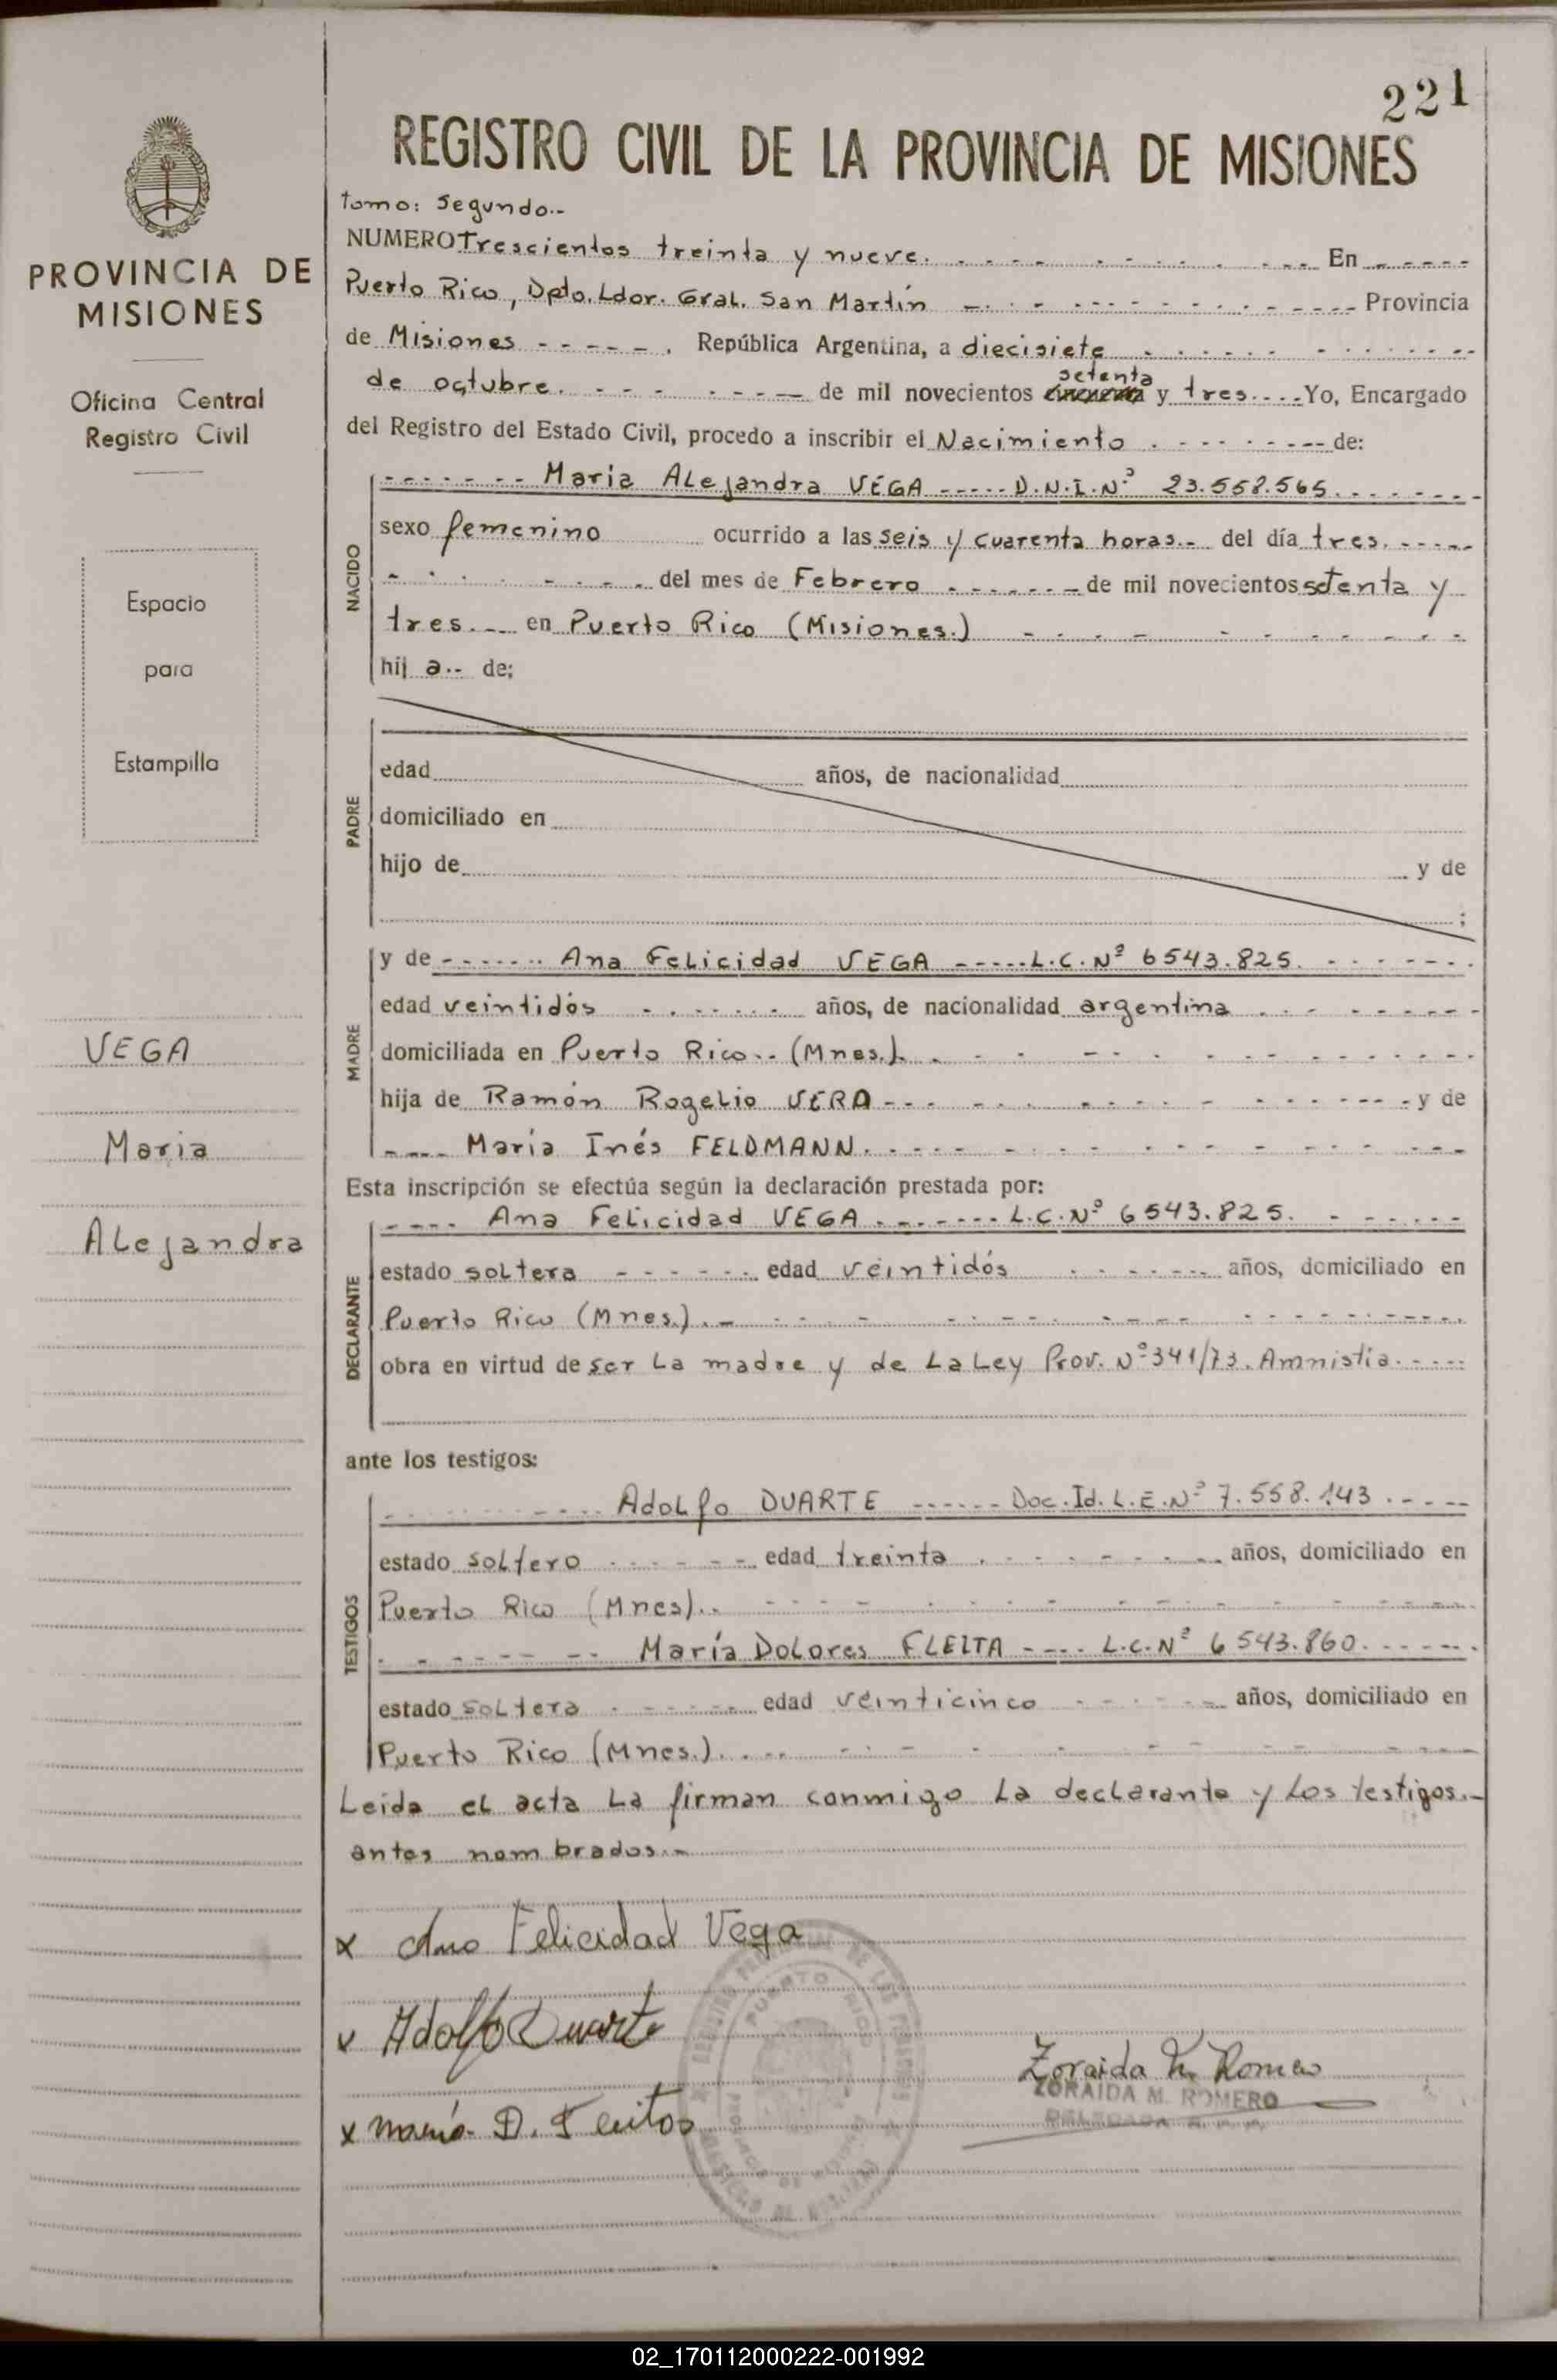 221
REGISTRO CIVIL DE LA PROVINCIA DE MISIONES
PROVINCIA DE
MISIONES
Oficina Central
Registro Civil
Espacio
para
Estampilla
VEGA
Maria
Alejandra
tomo: Segundo.-
NUMERO Trescientos treinta y nueve. En
Puerto Rico, Dpto. Ldor. Gral. San Martín Provincia
de Misiones . República Argentina, a diecisiete
de octubre. de mil novecientos setenta y tres. Yo, Encargado
del Registro del Estado Civil, procedo a inscribir el Nacimiento de:
NACIDO
Maria Alejandra VEGA D.N.I.Nº 23.558.565.
sexo femenino ocurrido a las seis y cuarenta horas.- del día tres.
del mes de Febrero de mil novecientos setenta y
tres. en Puerto Rico (Misiones.)
hij a.- de;
PADRE
edad años, de nacionalidad
domiciliado en
hijo de y de
;
MADRE
y de Ana Felicidad VEGA L.C.Nº 6543.825.
edad veintidós años, de nacionalidad argentina
domiciliada en Puerto Rico.. (Mnes.).
hija de Ramón Rogelio VERA y de
María Inés FELDMANN.
Esta inscripción se efectúa según la declaración prestada por:
DECLARANTE
Ana Felicidad VEGA L.C.Nº 6543.825.
estado soltera edad veintidós años, domiciliado en
Puerto Rico (Mnes.).
obra en virtud de ser La madre y de La Ley Prov. Nº 341/73. Amnistía.
ante los testigos:
TESTIGOS
Adolfo DUARTE Doc. Id. L.E.Nº 7.558.143.
estado soltero edad treinta años, domiciliado en
Puerto Rico (Mnes)..
María Dolores FLEITA L.C.Nº 6543.860.
estado soltera edad veinticinco años, domiciliado en
Puerto Rico (Mnes.).
Leída el acta La firman conmigo La declarante y Los testigos.-
antes nombrados.-
x Ana Felicidad Vega
Adolfo Duarte
x María D. Fleitas
PUERTO RICO
Zoraida M. Romero
ZORAIDA M. ROMERO
DELEGADA
02_170112000222-001992